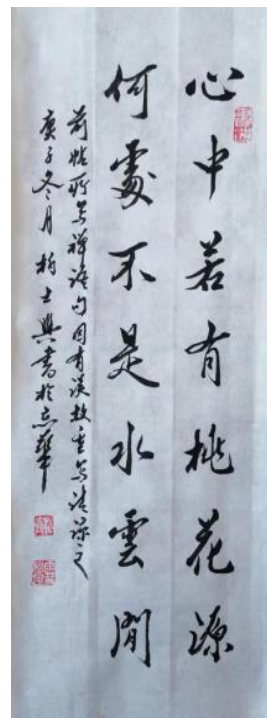 心中若有桃花源
何處不是水雲間
前帖所寫禪語句因有误故重寫请諒之
庚子冬月柏士興書於京華